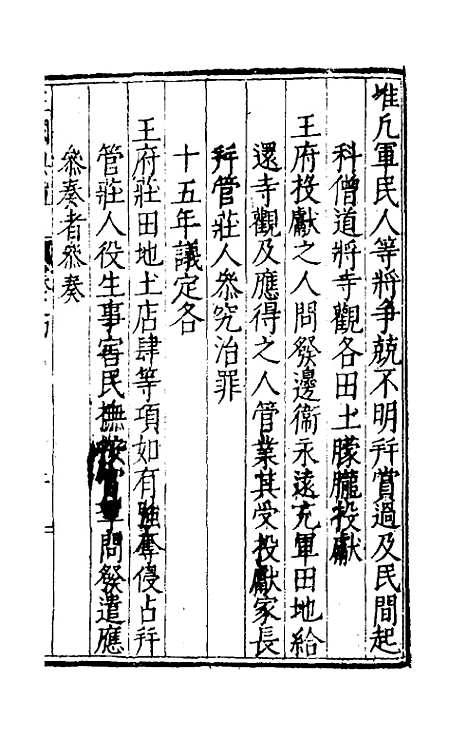 准凡軍民人等將爭競不明幷賣過及民間起
科僧道將寺觀各田土朦朧投獻
王府投獻之人問發邊衞永遠充軍田地給
還寺觀及應得之人管業其受投獻家長
幷管莊人叅究治罪
十五年議定各
王府莊田地土店肆等項如有強奪侵占幷
管莊人役生事害民撫按官問發遣應
叅奏者叅奏